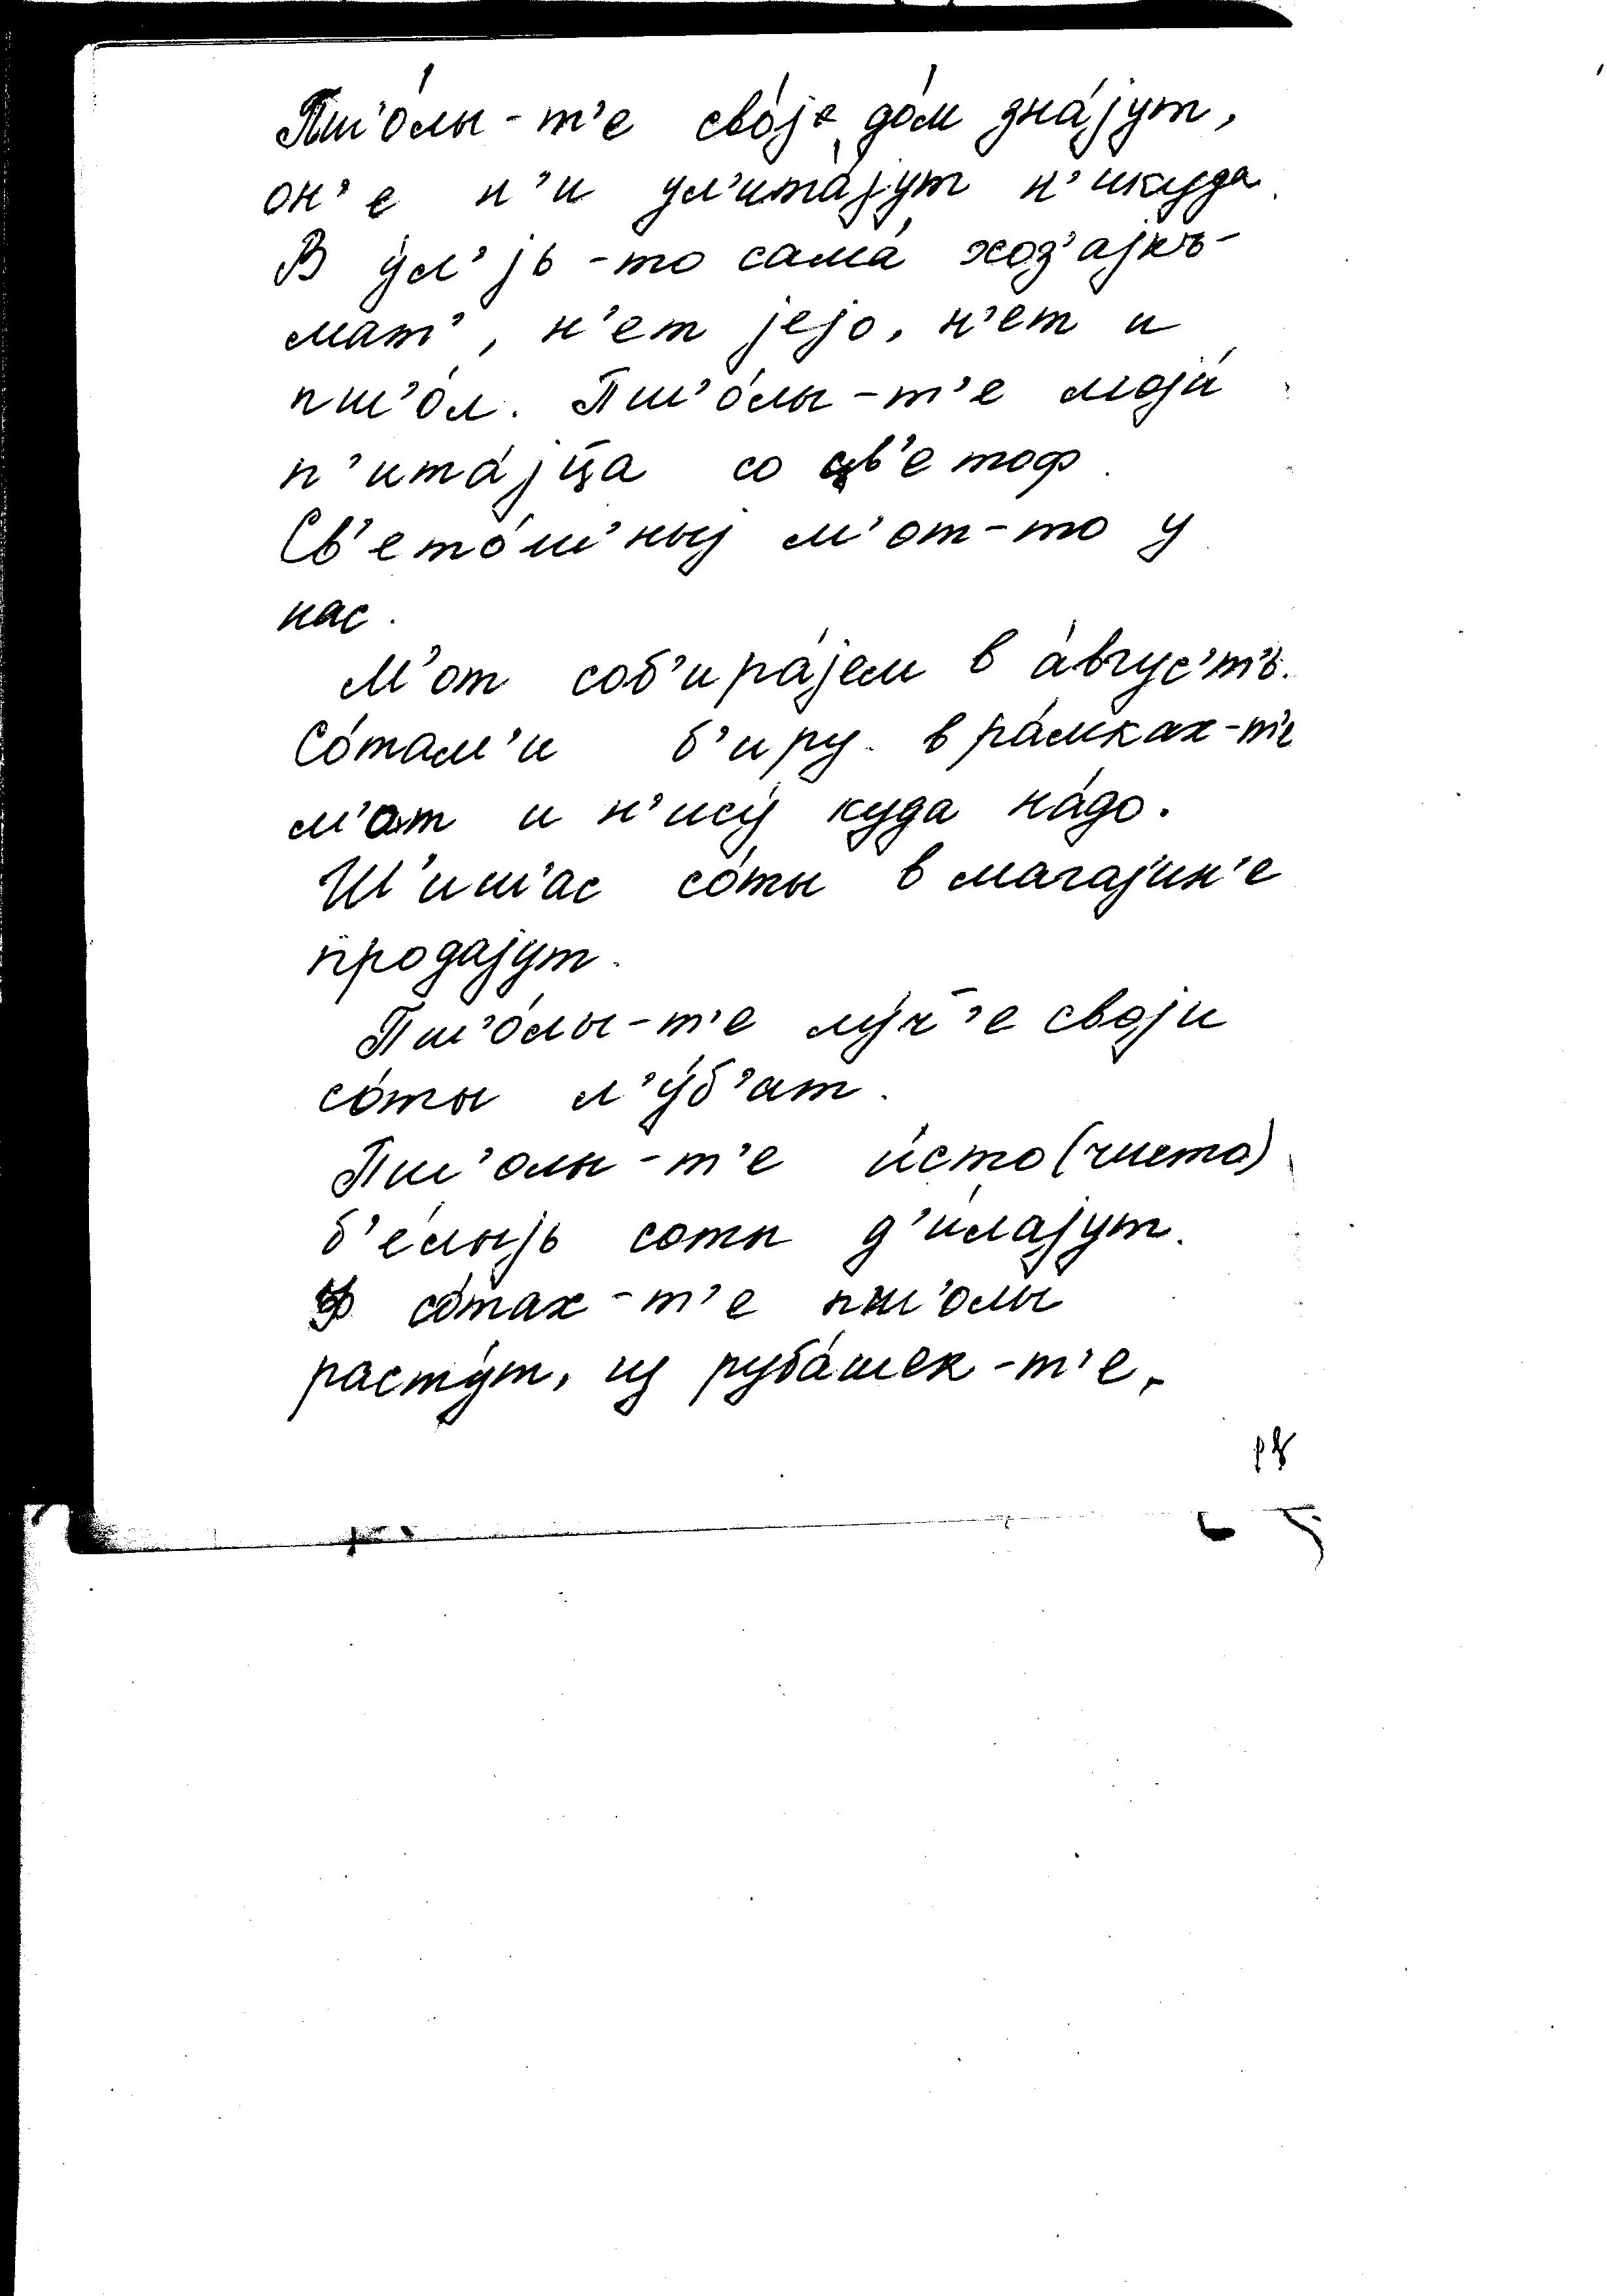 Пш'о́лы-т'е сво́jе до́м зна́jут,
он'е н'и ул'ита́jут н'икуда.
В у́л'jь-то сама́ хоз'аjкъ-
мат', н'ет jejo, н'ет и
пш'о́л. Пш'о́лы-т'е моjи́
п'ита́jц̄а со цв'етоф.
Св'ето́ш'ныj м'от-то у
нас.
М'от соб'ира́jем в а́вгус'т'ь.
Со́там'и б'иру. в ра́мках-т'е
м'от и н'ису́ куда на́до.
Ш'иш'ас со́ты в магаjин'е
продаjут.
Пш'о́лы-т'е лу́ч̄'е своjи
со́ты л'у́б'ат.
Пш'олы-т'е и́сто (чисто)
б'е́лыjь соты д'и́лаjут.
Ф со́тах-т'е пш'олы
расту́т, из руба́шек-т'е.